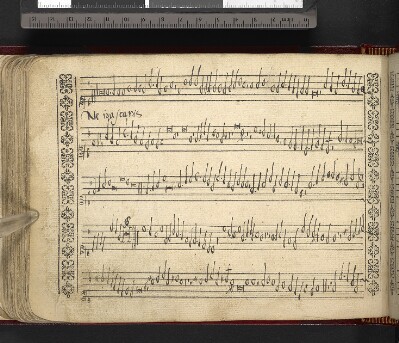 Ne irascaris